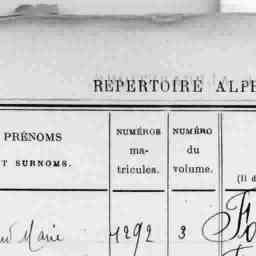 REPERTOIRE ALPH
PRÉNOMS
T SURNOMS.
NUMÉROS
ma-
tricules.
NUMÉRO
du
volume.
(Il d
Marie 1292 3